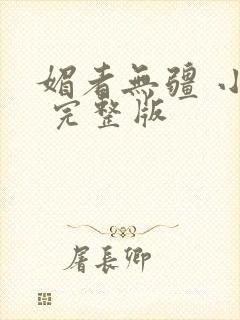 媚者無疆 小
完整版
屠長卿